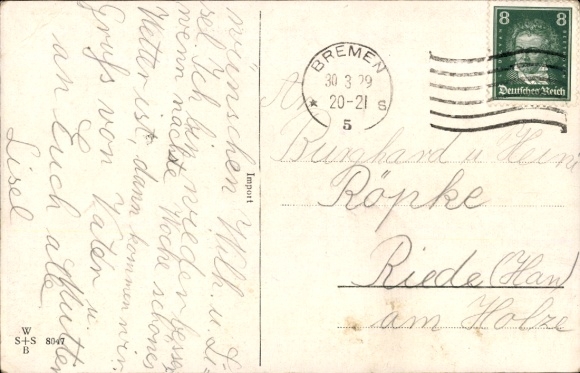 wünschen Wilh. u. Li-
sel. Ich bin wieder besser
wenn nächste Woche schönes
Wetter ist, dann kommen wir.
Gruß von Vater u. Mutter
an Euch alle
Lisel
Import
W
S+S 8047
B
BREMEN
30 3 29
20-21 S
★ 5
8 8
Deutsches Reich
Burghard u
Röpke
Riede (Han)
am Holze